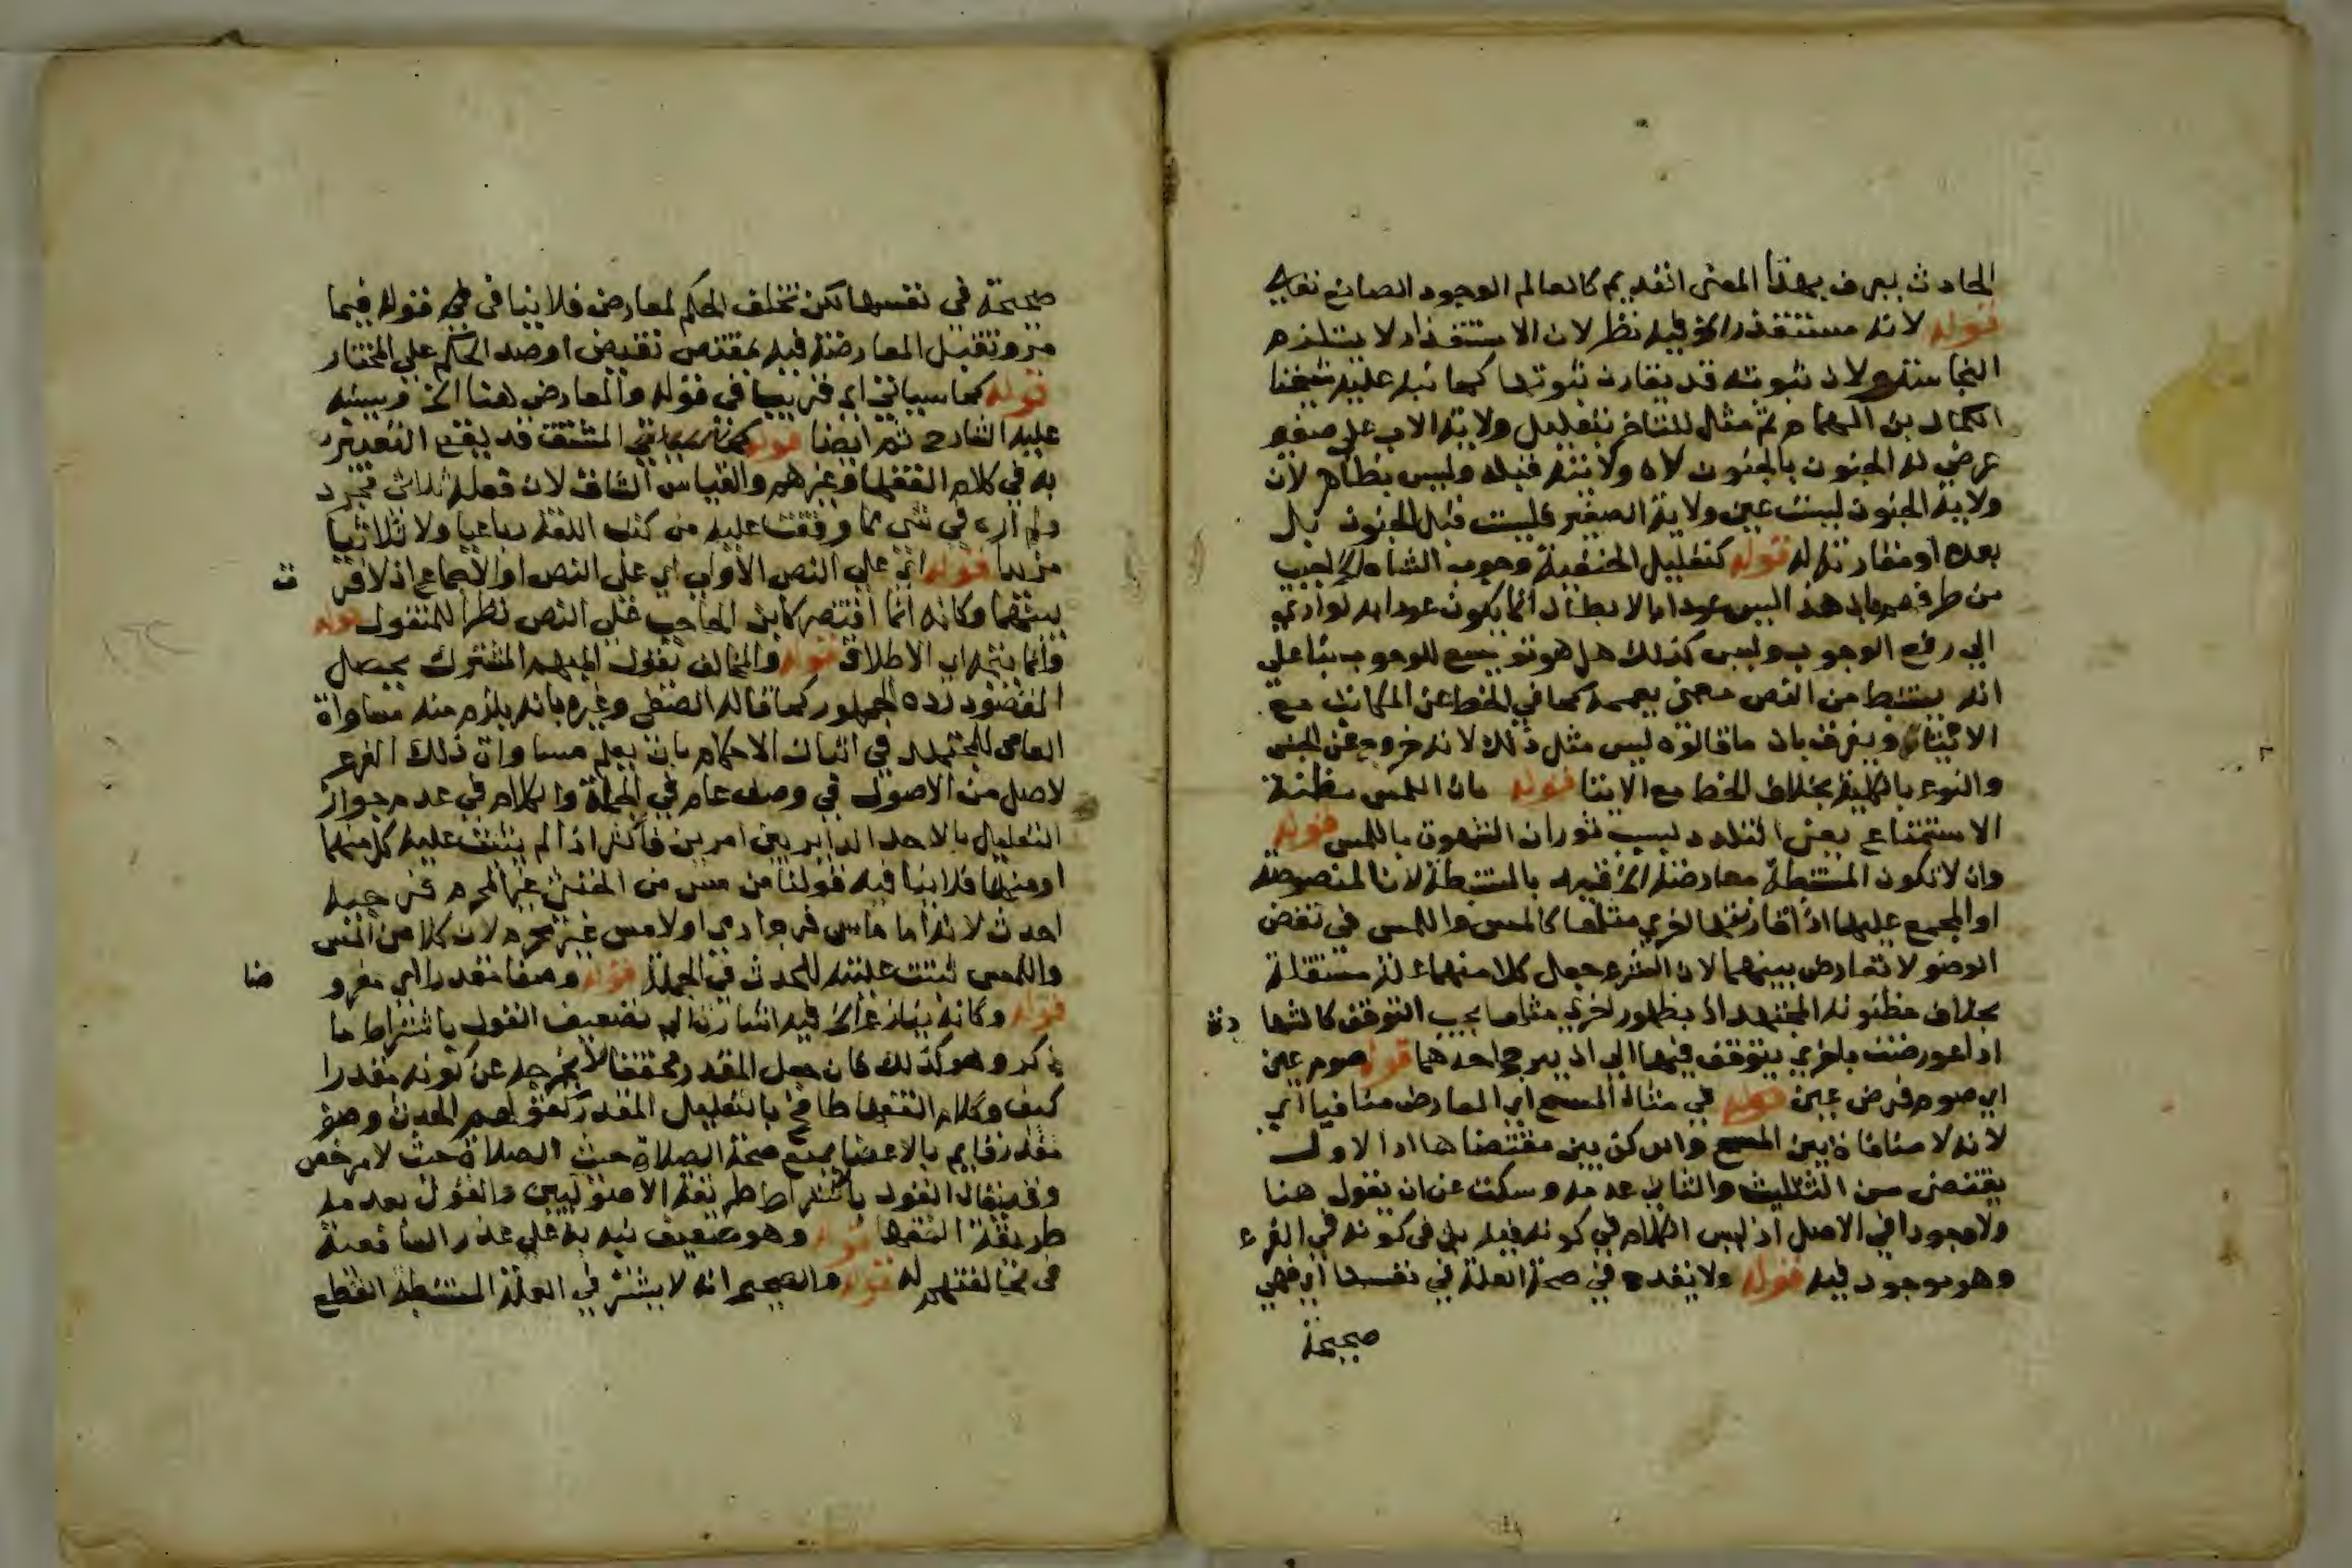 الحادث يعرف بهذا المعنى القديم كالعالم لوجود الصانع تعالى
قوله لانه مستقذر الخ فيه نظر لان الاستقذار لا يستلزم
النجاسة ولان ثبوته قد يقارن ثبوتها كما نبه عليه شيخنا
الكمال بن الهمام ثم مثل للمتاخر بتعليل ولاية الاب على صغير
عرض له الجنون بالجنون لان ولايته قبله وليس بظاهر لان
ولاية الجنون ليست عين ولاية الصغير فليست قبل الجنون بل
بعده او مقارنة له قوله كتعليل الحنفية وجوب الشاة الخ اجيب
من طرفهم بان هذا ليس عودا بالابطال انما يكون عودا به لو ادي
الي رفع الوجوب وليس كذلك هل هو توسيع للوجوب بنا علي
انه يستنبط من النص معني يعممه كما في الحط عن المكاتب مع
الايتاء ويفرق بان ما قالوه ليس مثل ذلك لانه خروج عن الجنس
والنوع بالكلية بخلاف الحط مع الايتا قوله فان اللمس مظنة
الاستمتاع يعني التلذذ لسبب ثوران الشهوة باللمس قوله
وان لا تكون المستنبطة معارضة الخ قيد بالمستنبطة لان المنصوصة
او المجمع عليها اذا قارنتها اخري مثلها كالمس واللمس في نقض
الوضو لا تعارض بينهما لان الشرع جعل كلا منهما علة مستقلة
بخلاف مظنونة المجتهد اذ بظهور اخري مثلها يجب التوقف كالشها
دة
اذا عورضت باخري يتوقف فيها الي ان يرجح احدهما قوله صوم عين
اي صوم فرض عين قوله في مثال المسح اي المعارض منافيا اي
لانه لا منافاة بين المسح والركن بين مقتضاهما اذ الاول
يقتضي سن التثليث والثاني عدمه وسكت عن ان يقول هنا
ولا موجودا في الاصل اذ ليس الكلام في كونه فيه بل في كونه في الفرع
وهو موجود فيه قوله ولا يقدح في صحة العلة في نفسها اي فهي
صحيحة
صحيحة في نفسها لكن تخلف الحكم لمعارض فلا ينافي قوله فيما
مر وتقبل المعارضة فيه بمقتض نقيض او ضد الحكم علي المختار
قوله كما سياتي اي قريبا في قوله والمعارض هنا الخ وبينه
عليه الشارح ثم ايضا قوله كما سياتي المشقق قد يقع التعبير
به في كلام الفقها وغيرهم والقياس الشاق لان فعله ثلاثي مجرد
ولم اره في شي مما وقفت عليه من كتب اللغة رباعيا ولا ثلاثيا
مزيدا قوله اي علي النص الاولي اي علي النص او الاجماع اذ لا فر
ق
بينهما وكانه انما اقتصر كابن الحاجب علي النص نظرا للمنقول قوله
وانما يتجه اي الاطلاق قوله والمخالف يقول المبهم المشترك يحصل
المقصود رده الجمهور كما قاله الصفي وغيره بانه يلزم منه مساواة
العامي للمجتهد في اثبات الاحكام بان يعلم مساواة ذلك الفرع
لاصل من الاصول في وصف عام في الجملة والكلام في عدم جواز
التعليل بالاحد الداير بين امرين فاكثر اذا لم يثبت علية كل منهما
او منها فلا ينافيه قولنا من مس من الخنثى غير المحرم فرجيه
احدث لانه اما ماس فرج ادمي او لامس غير محرم لان كلا من المس
واللمس ثبتت عليته للحدث في الجملة قوله وصفا مقدرا اي مفرو
ضا
قوله وكانه ينازع الخ فيه اشارة الي تضعيف القول باشتراط ما
ذكر وهو كذلك فان جعل المقدر محققا لا يخرجه عن كونه مقدرا
كيف وكلام الفقها طافح بالتعليل المقدر كقولهم الحدث وصف
مقدر قايم بالاعضا يمنع صحة الصلاة حيث لا مرخص
وقد يقال القول باشتراط طريقة الاصوليين والقول بعدمه
طريقة الفقها قوله وهو ضعيف نبه به علي عذر الشافعية
في مخالفتهم له قوله والصحيح انه لا يشترط في العلة المستنبطة القطع